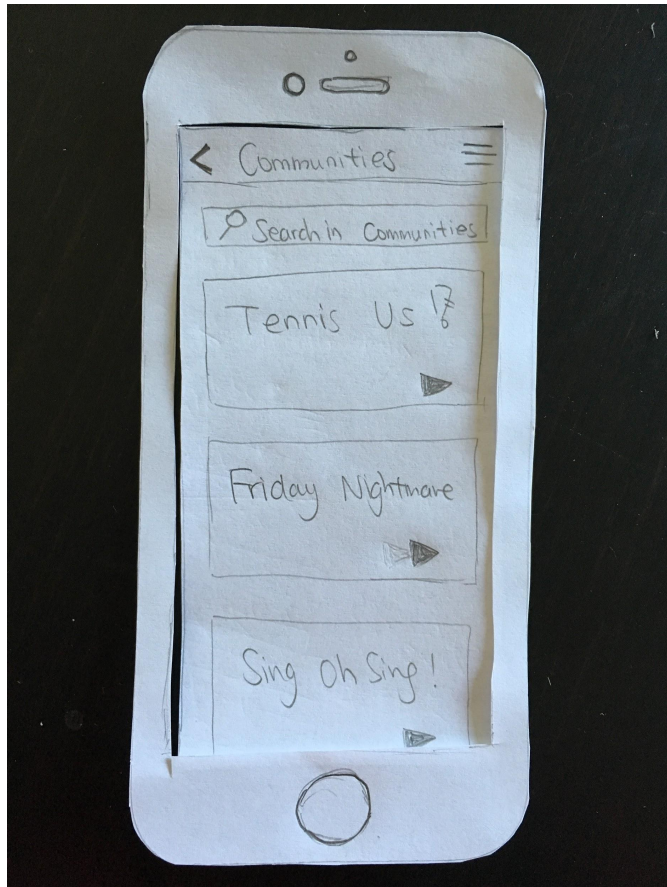 Communities
Search in Communities
Tennis Us !?
Friday Nightmare
Sing Oh Sing!